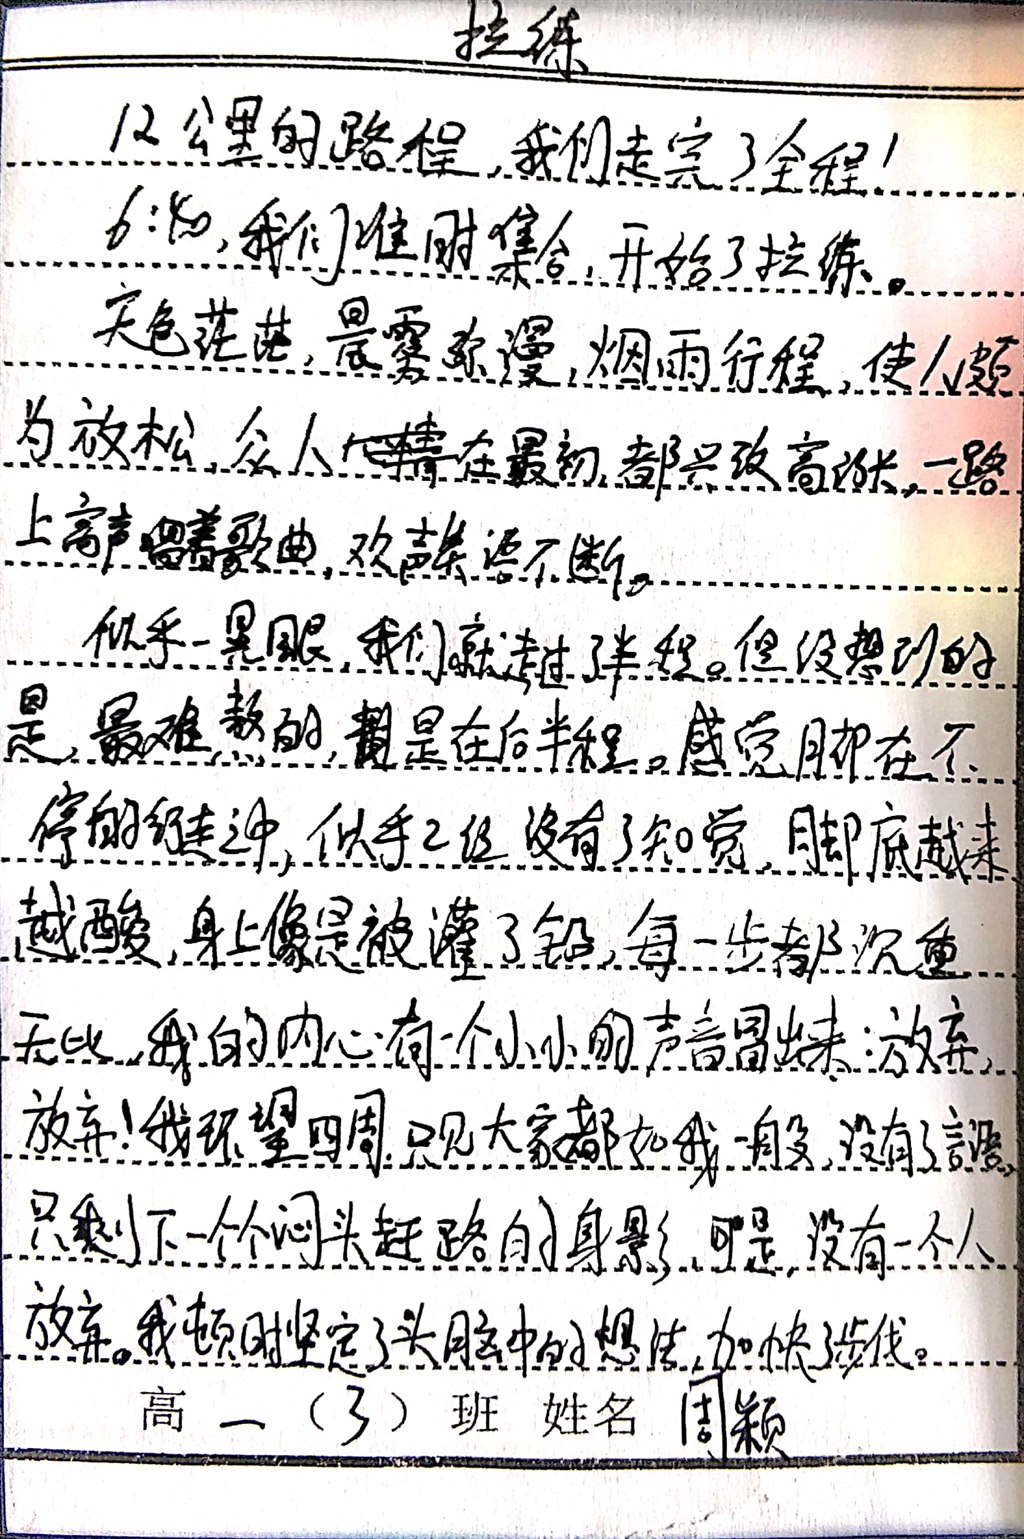 拉练
12公里的路程，我们走完了全程！
6:40，我们准时集合，开始了拉练。
天色茫茫，晨雾弥漫，烟雨行程，使人颇
为放松，众人在最初，都兴致高涨，一路
上高声唱着歌曲，欢声笑语不断。
似乎一晃眼，我们就走过了半程。但没想到的
是，最难熬的，是在后半程。感觉脚在不
停的行走之中，似乎已经没有了知觉，脚底越来
越酸，身上像是被灌了铅，每一步都沉重
无比，我的内心有一个小小的声音冒出来：放弃，
放弃！我环望四周，只见大家都如我一般，没有了言语，
只剩下一个个闷头赶路的身影，可是，没有一个人
放弃。我顿时坚定了头脑中的想法，加快了步伐。
高一（3）班 姓名 周颖